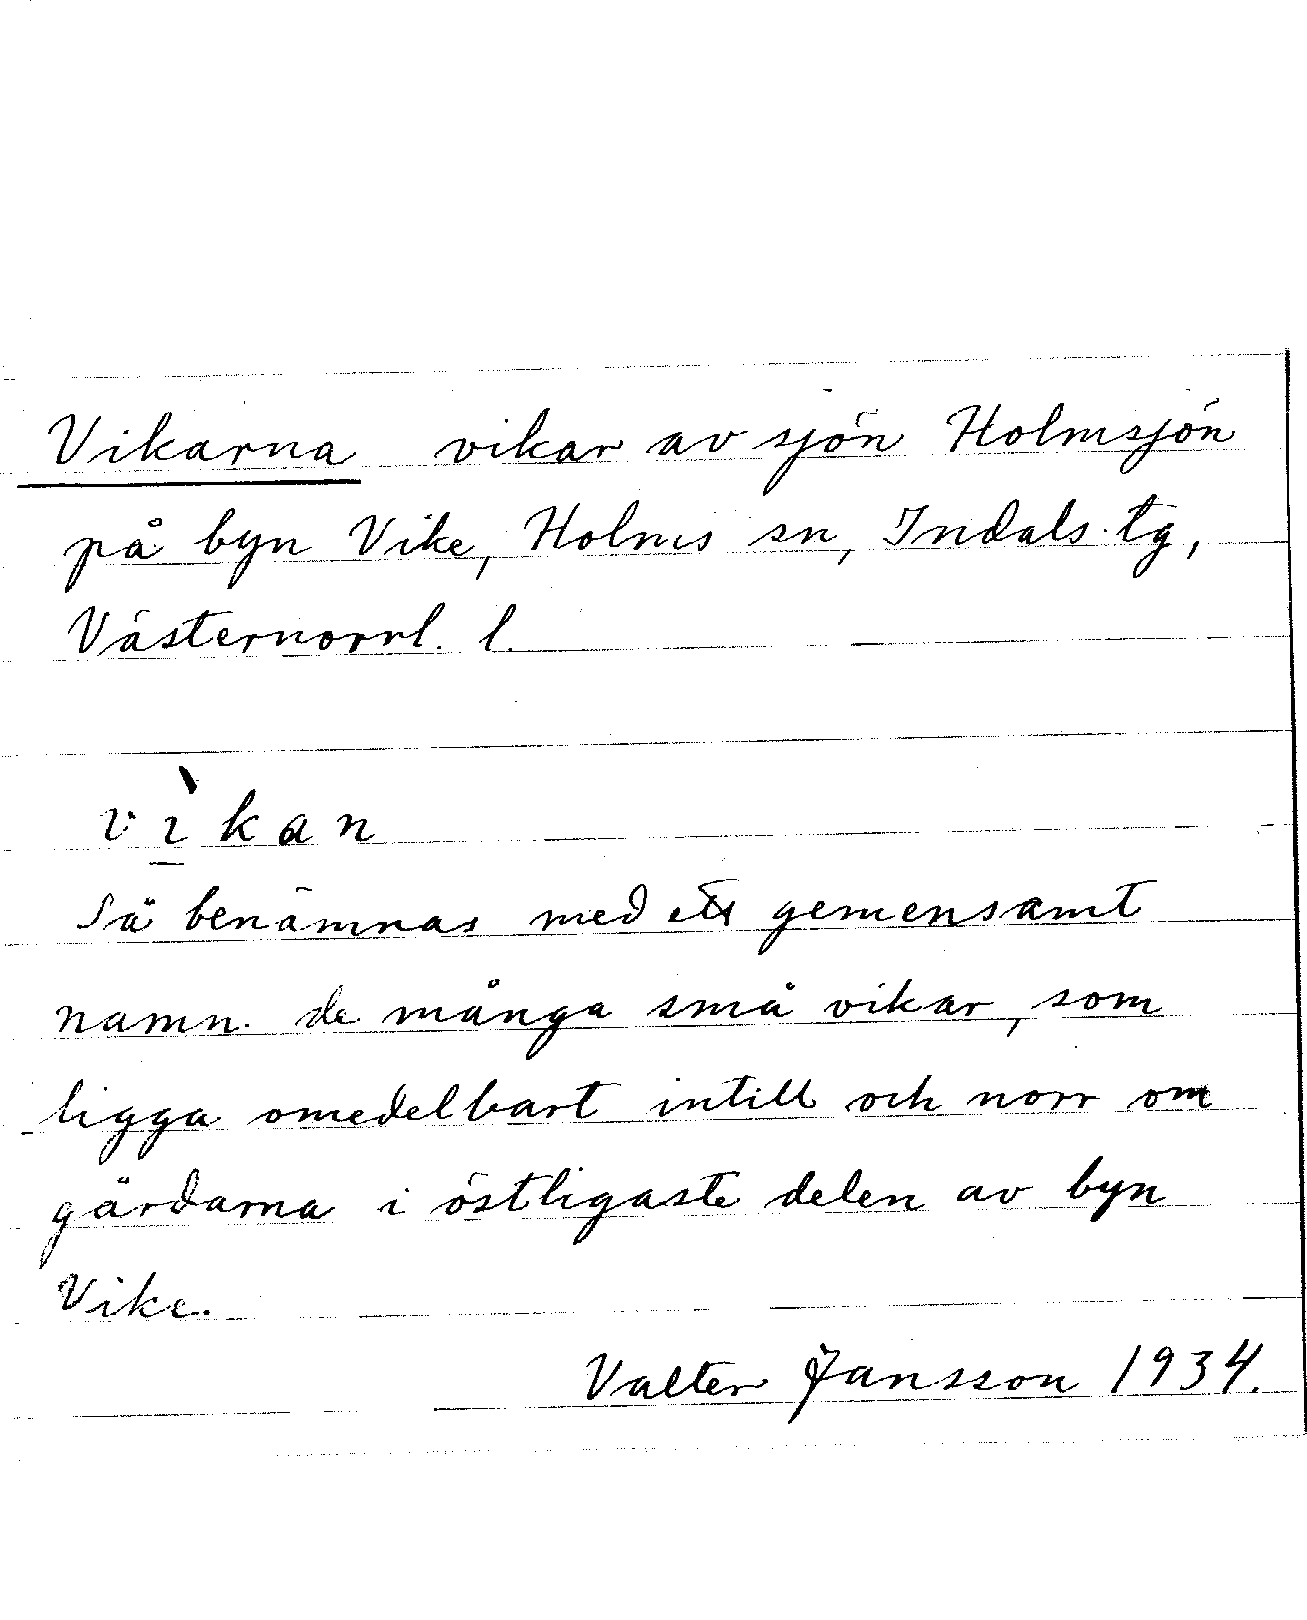 Vikarna vikar av sjön Holmsjön
på byn Vike, Holms sn, Indals tg,
Västernorrl. l.
vìkan
Så benämnas med ett gemensamt
namn de många små vikar, som
ligga omedelbart intill och norr om
gårdarna i östligaste delen av byn
Vike.
Valter Jansson 1934.